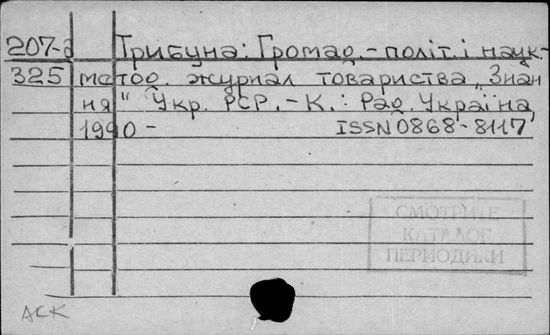 207-д Трибуна: Громад.-політ. і наук-
325 метод. журнал товариства „Знан
ня" Укр. РСР. - К.: Рад. Україна,
1990 - ISSN 0868-8117
СМОТРИТЕ
КАТАЛОГ
ПЕРИОДИКИ
АСК